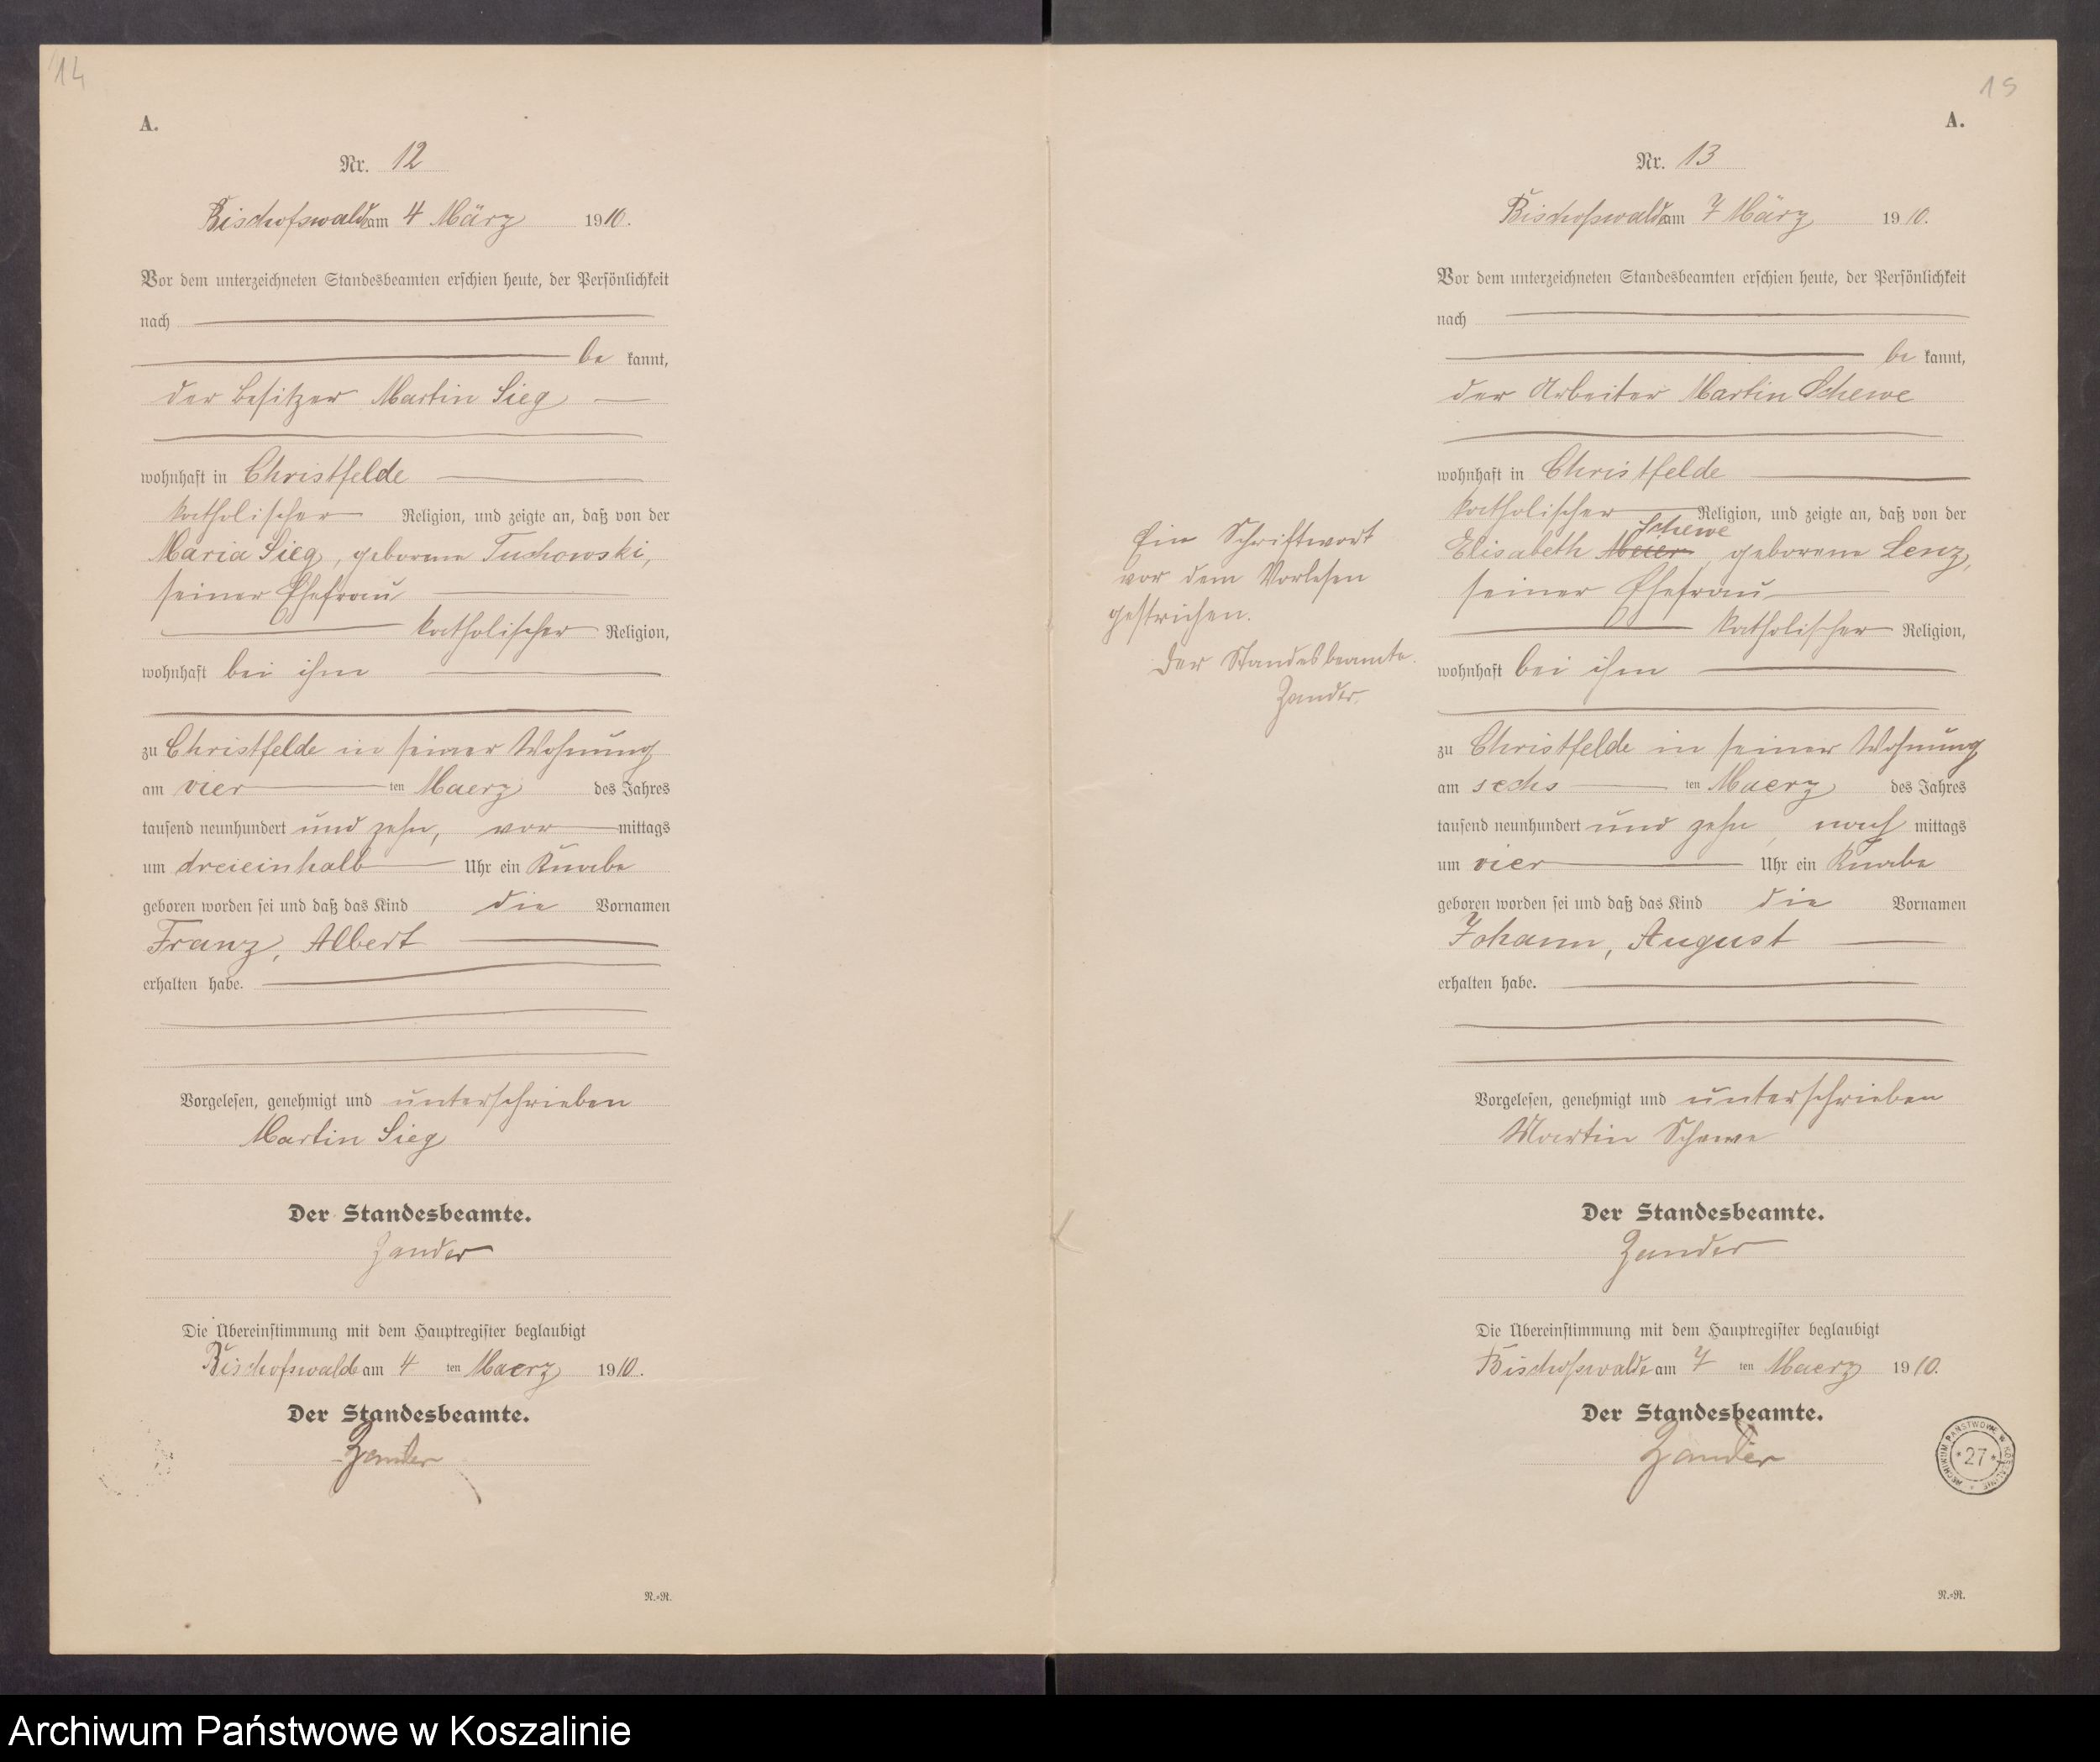 14
A.
Nr. 12
Bischofswalde am 4 März 1910.
Vor dem unterzeichneten Standesbeamten erschien heute, der Persönlichkeit
nach
be kannt,
der Besitzer Martin Sieg
wohnhaft in Christfelde
katholischer Religion, und zeigte an, daß von der
Maria Sieg, geborene Tuchowski,
seiner Ehefrau
katholischer Religion,
wohnhaft bei ihm
zu Christfelde in seiner Wohnung
am vier ten Maerz des Jahres
tausend neunhundert und zehn, vor mittags
um dreieinhalb Uhr ein Knabe
geboren worden sei und daß das Kind die Vornamen
Franz, Albert
erhalten habe.
Vorgelesen, genehmigt und unterschrieben
Martin Sieg
Der Standesbeamte.
Zander
Die Übereinstimmung mit dem Hauptregister beglaubigt
Bischofswalde am 4 ten Maerz 1910.
Der Standesbeamte.
Zander
N.=R.
15
A.
Nr. 13
Bischofswalde am 7 März 1910.
Vor dem unterzeichneten Standesbeamten erschien heute, der Persönlichkeit
nach
be kannt,
der Arbeiter Martin Schewe
wohnhaft in Christfelde
katholischer Religion, und zeigte an, daß von der
Schewe
Elisabeth Meier geborene Lenz,
seiner Ehefrau
katholischer Religion,
wohnhaft bei ihm
zu Christfelde in seiner Wohnung
am sechs ten Maerz des Jahres
tausend neunhundert und zehn, nach mittags
um vier Uhr ein Knabe
geboren worden sei und daß das Kind die Vornamen
Johann, August
erhalten habe.
Vorgelesen, genehmigt und unterschrieben
Martin Schewe
Der Standesbeamte.
Zander
Die Übereinstimmung mit dem Hauptregister beglaubigt
Bischofswalde am 7 ten Maerz 1910.
Der Standesbeamte.
Zander
N.=R.
Ein Schriftwort
vor dem Vorlesen
gestrichen.
Der Standesbeamte.
Zander.
ARCHIWUM PAŃSTWOWE W KOSZALINIE
* 27 *
Archiwum Państwowe w Koszalinie